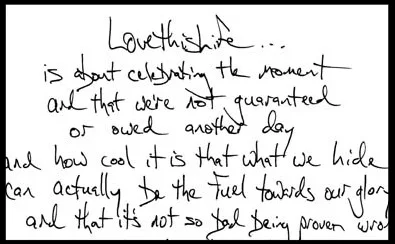 Lovethislife...
is about celebrating the moment
and that we're not guaranteed
or owed another day
and how cool it is that what we hide
can actually be the fuel towards our glory
and that it's not so bad being proven wro